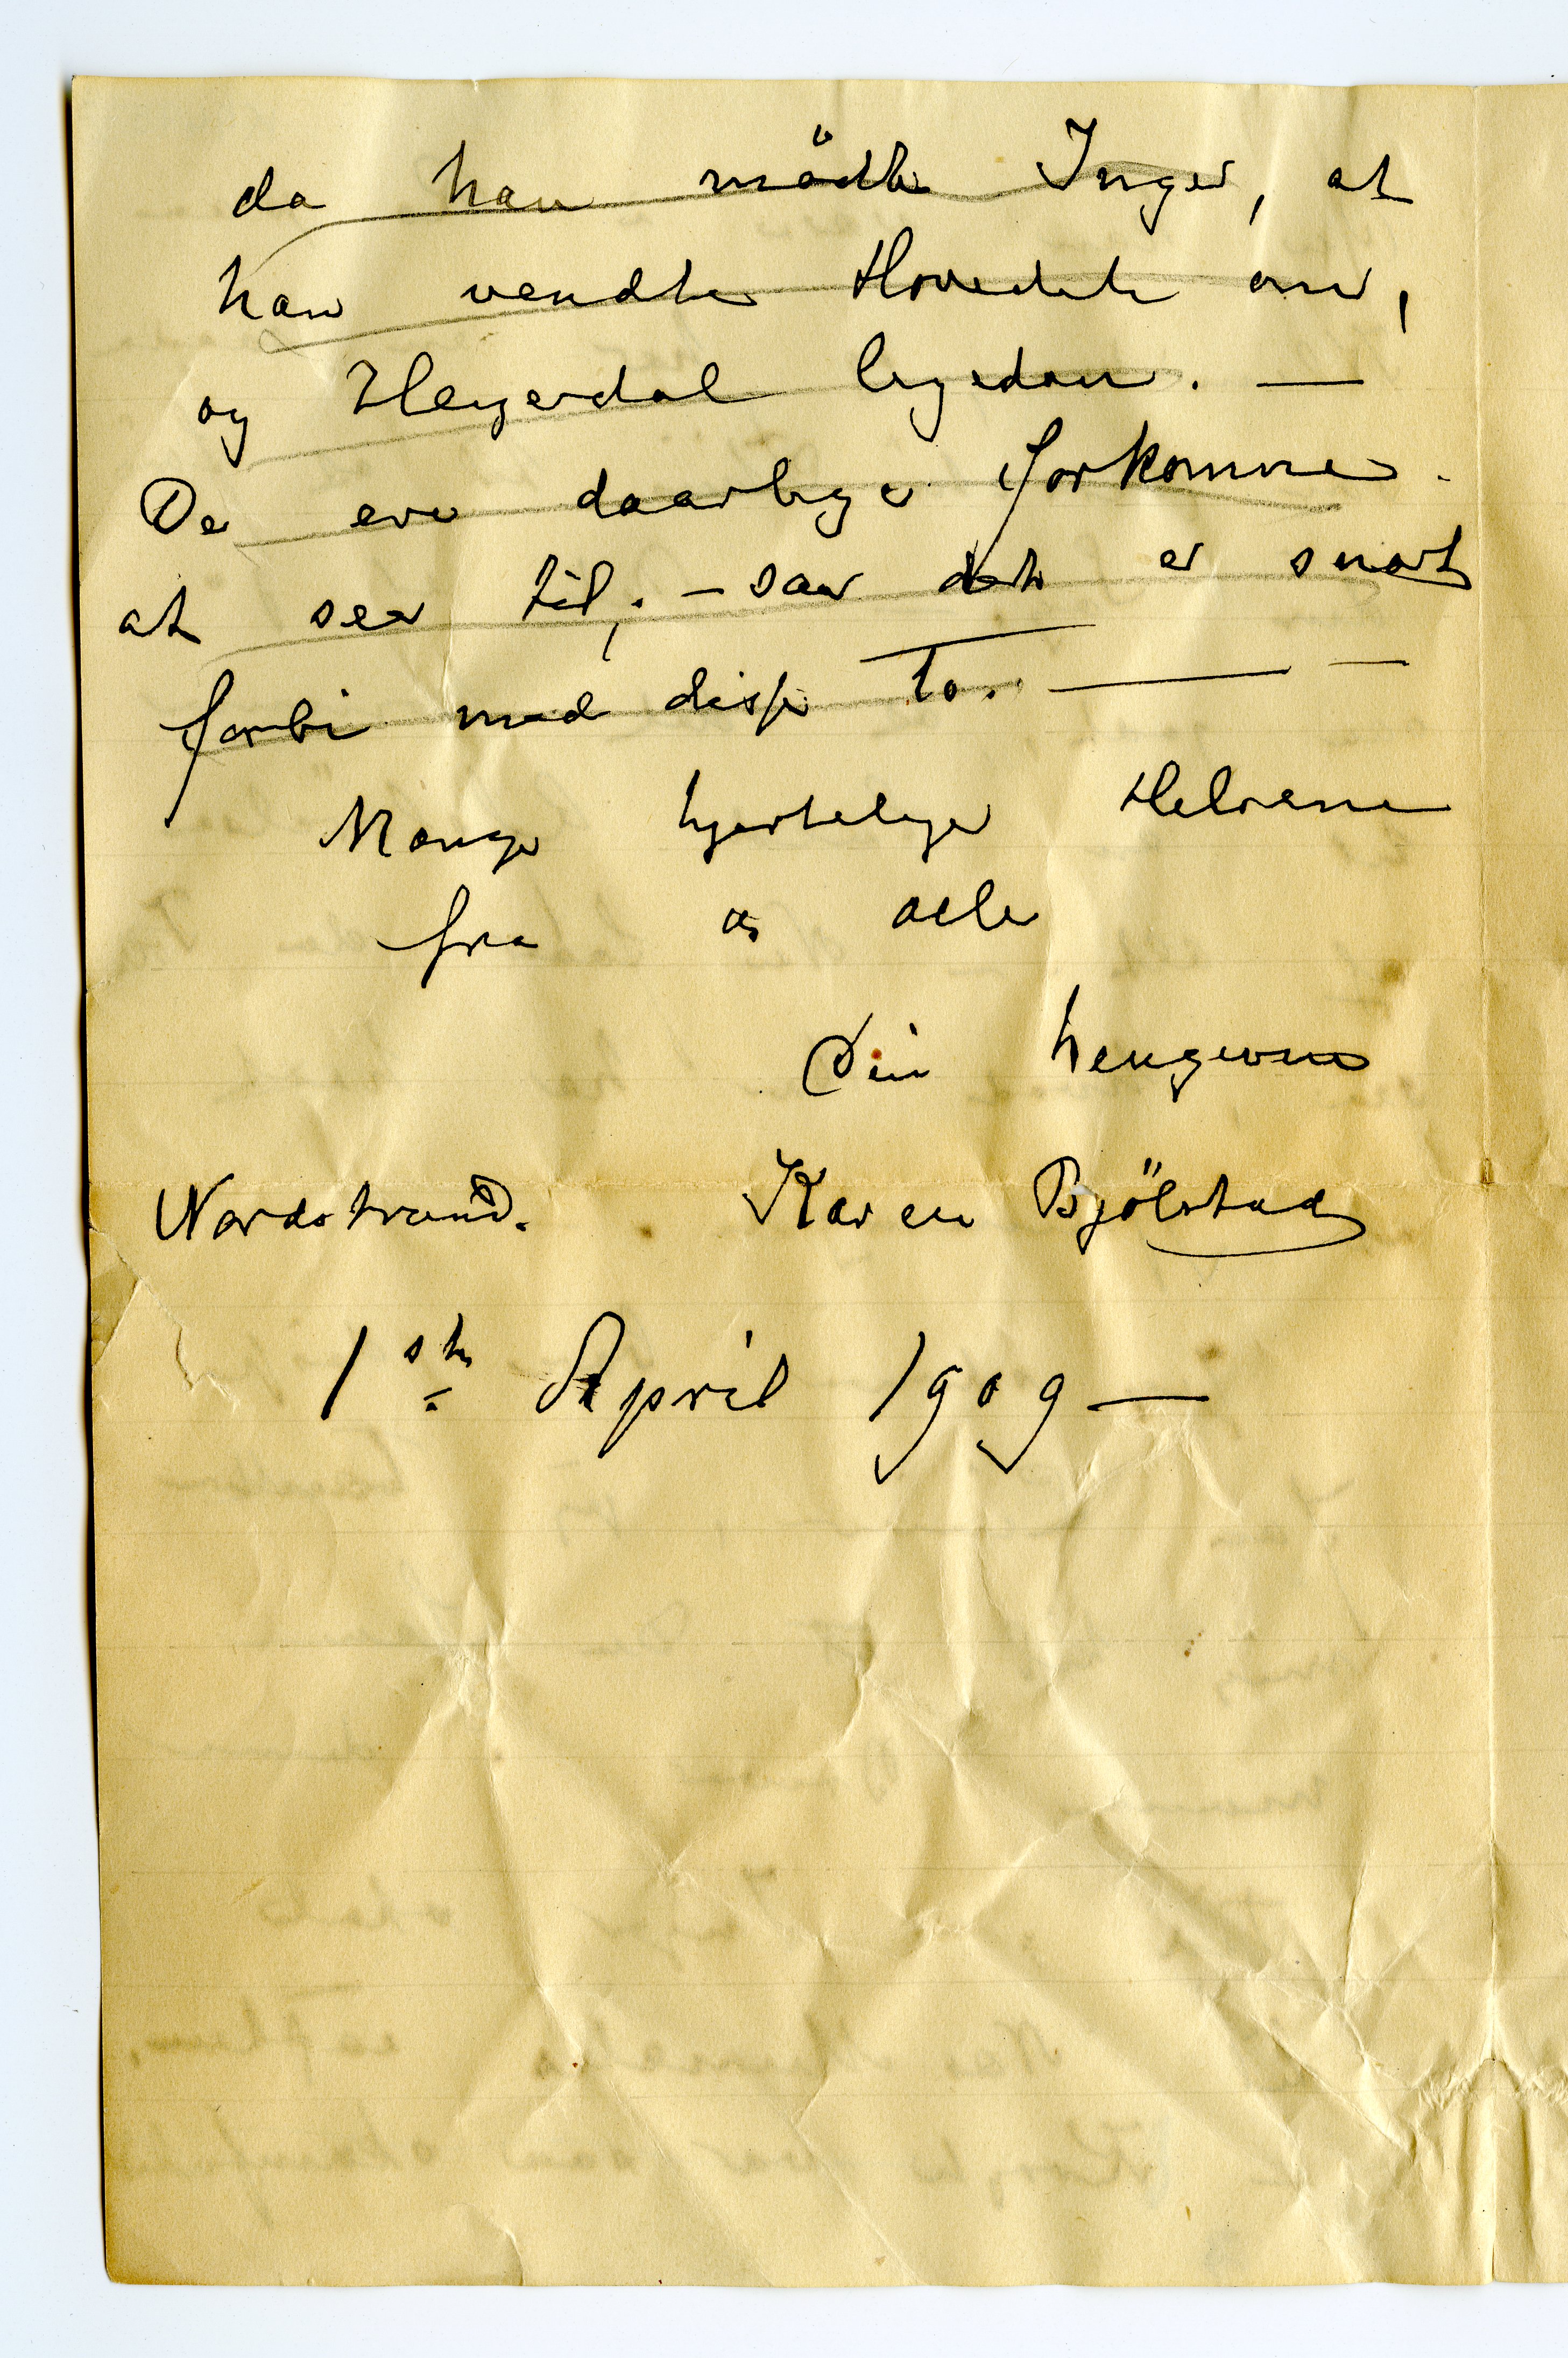 da han mödte Inger, at
han vendte Hovedet om,
og Heyerdal ligedan. —
De ere daarlige forkomne
at see til; – saa det er snart
forbi med disse To. — —
Mange hjertelige Hilsener
fra os alle
Din hengivne
Nordstrand. Karen Bjölstad
1ste April 1909 —